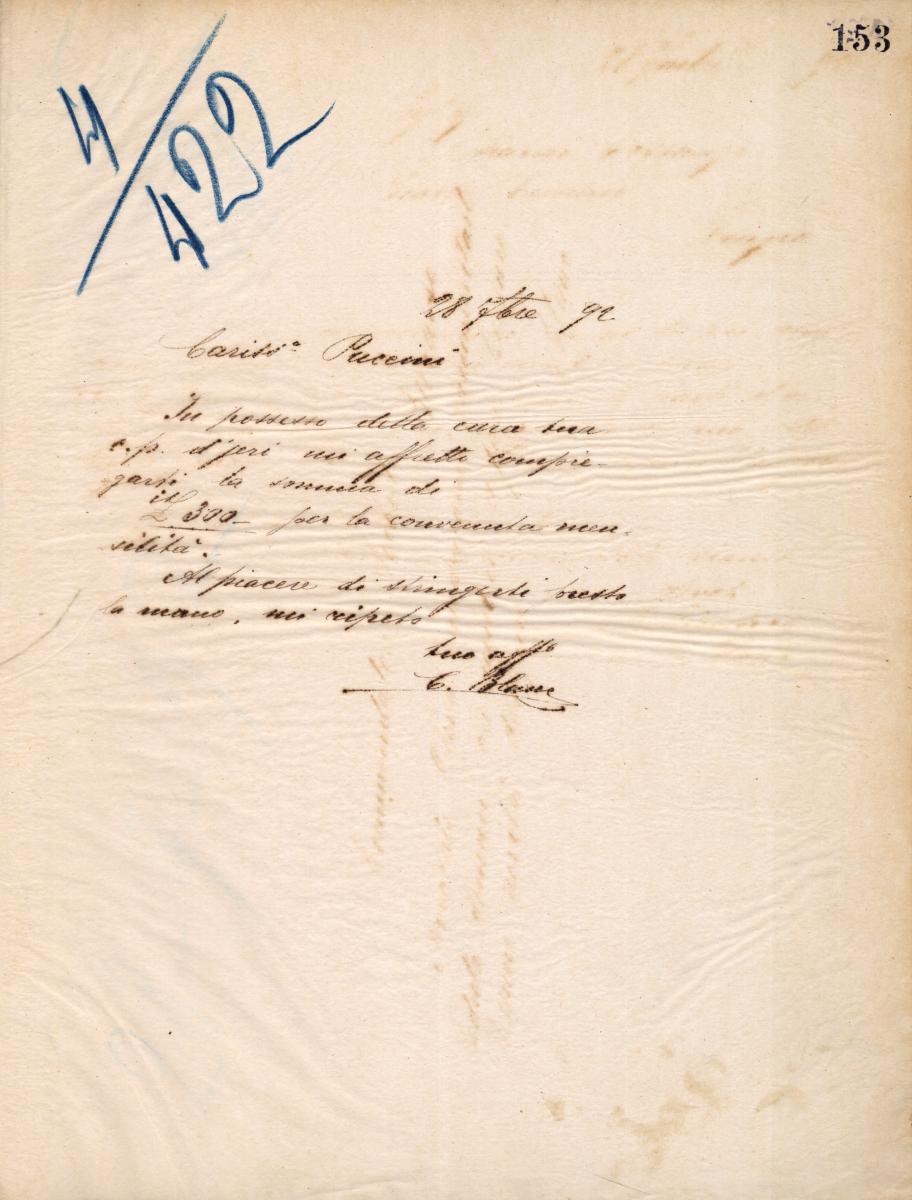 153
4/422
28 7bre 92
Cariss.º Puccini
In possesso della cara tua
c.p. d'jeri mi affretto compie-
garti la somma di
it £ 300 – per la convenuta men-
silità.
Al piacere di stringerti presto
la mano, mi ripeto
tuo aff.º
C. Blanc